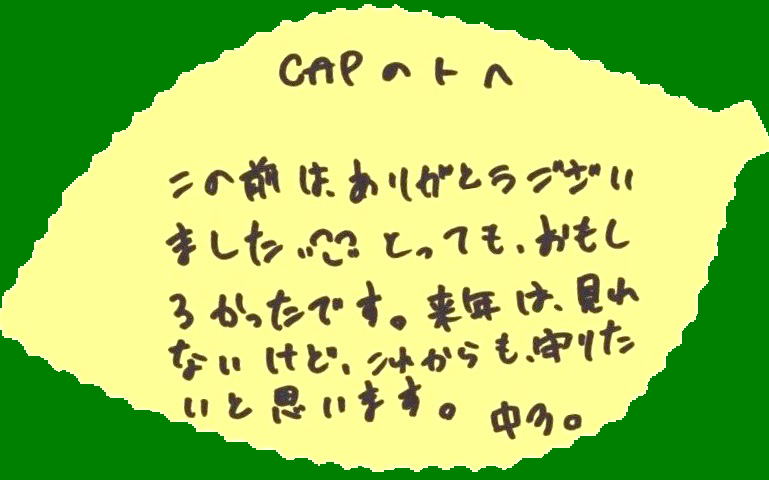 CAPのトへ
この前は、ありがとうござい
ました とっても、おもし
ろかったです。来年は、見れ
ないけど、これからも、守りた
いと思います。 中3。